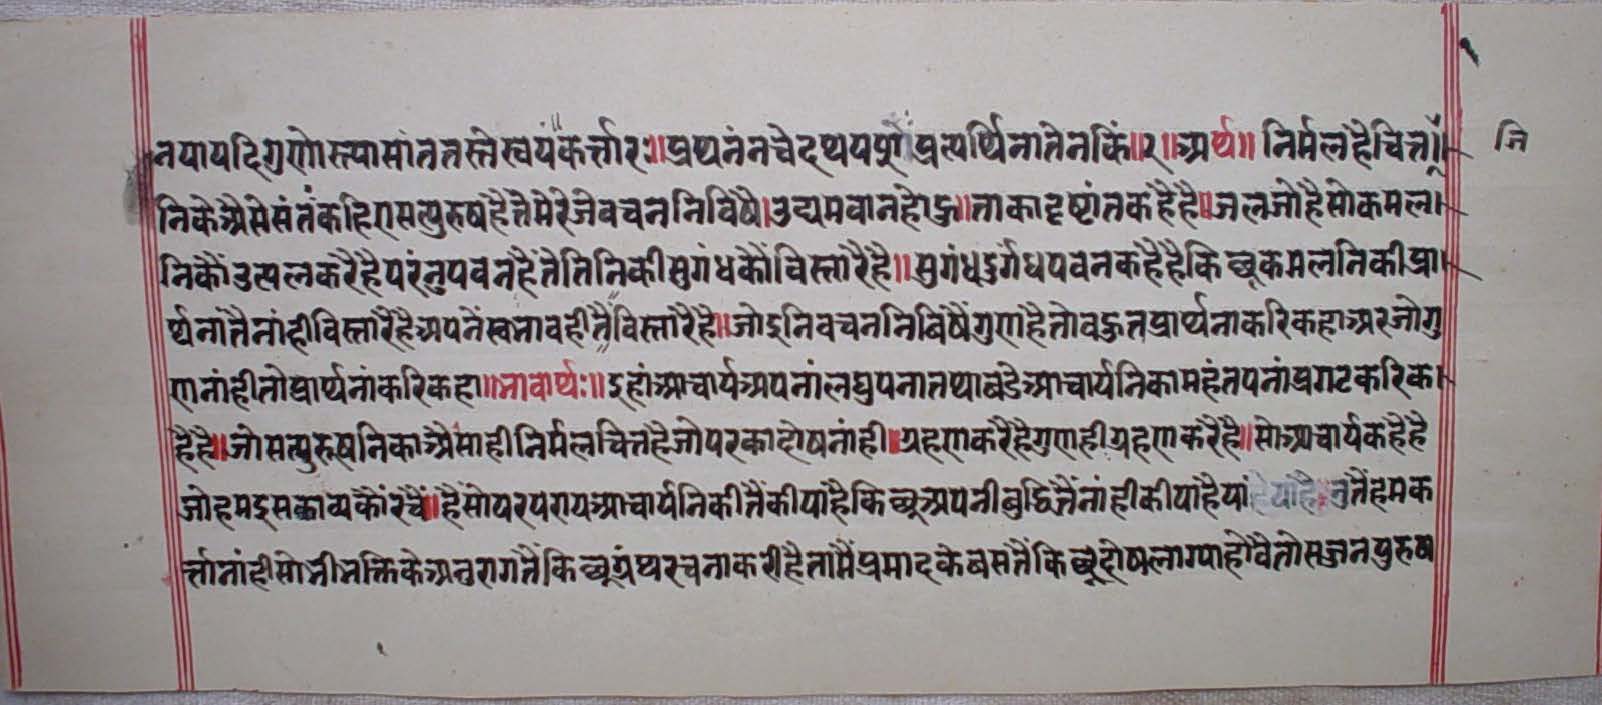 नयायदि गुणोस्त्यासां ततस्ते स्वयं कर्त्तारः॥ प्रथनं न चेदथ यशः प्रत्यर्थिना तेन किं॥२॥ अर्थ॥ निर्मल है चित्त जि
निके अैसे संतं कहिए सत्पुरुष है ते मेरे जे वचननिविषै। उद्यमवान होहु॥ ताका दृष्टांत कहै है॥ जल जो है सो कमल।
निकौं उत्पल करै है परंतु पवन है ते तिनिकी सुगंधकौं विस्तारै है॥ सुगंध दुर्गंध पवन कहै है कि छू कमलनिकी प्रा।
र्थना तै नांही विस्तारै है अपनें स्वभावही तैं विस्तारै है॥ जो इनि वचननिविषैं गुण है तो बहुत प्रार्थना करि कहा अर जो गु
ण नांही तो प्रार्थनां करि कहा॥ भावार्थः॥ इहां आचार्य अपनां लघुपना तथा बडे आचार्यनिका महंतपनां प्रगट करि क।
है है॥ जो सत्पुरुषनिका अैसाही निर्मल चित्त है जो परका दोष नांही॥ ग्रहण करै है गुणही ग्रहण करै है॥ सो आचार्य कहै है
जो हम इस काव्यकौं रचैं॥ हैं सो परंपराय आचार्यनिकी तैं कीया है कि छू अपनी बुद्धि तैं नांही कीया है या तैं हम क
र्त्ता नांही सो भी भक्तिके अनुराग तैं कि छू ग्रंथ रचना करी है तामैं प्रमादके बस तैं कि छू दोष लाग्या होवै तो सज्जन पुरुष